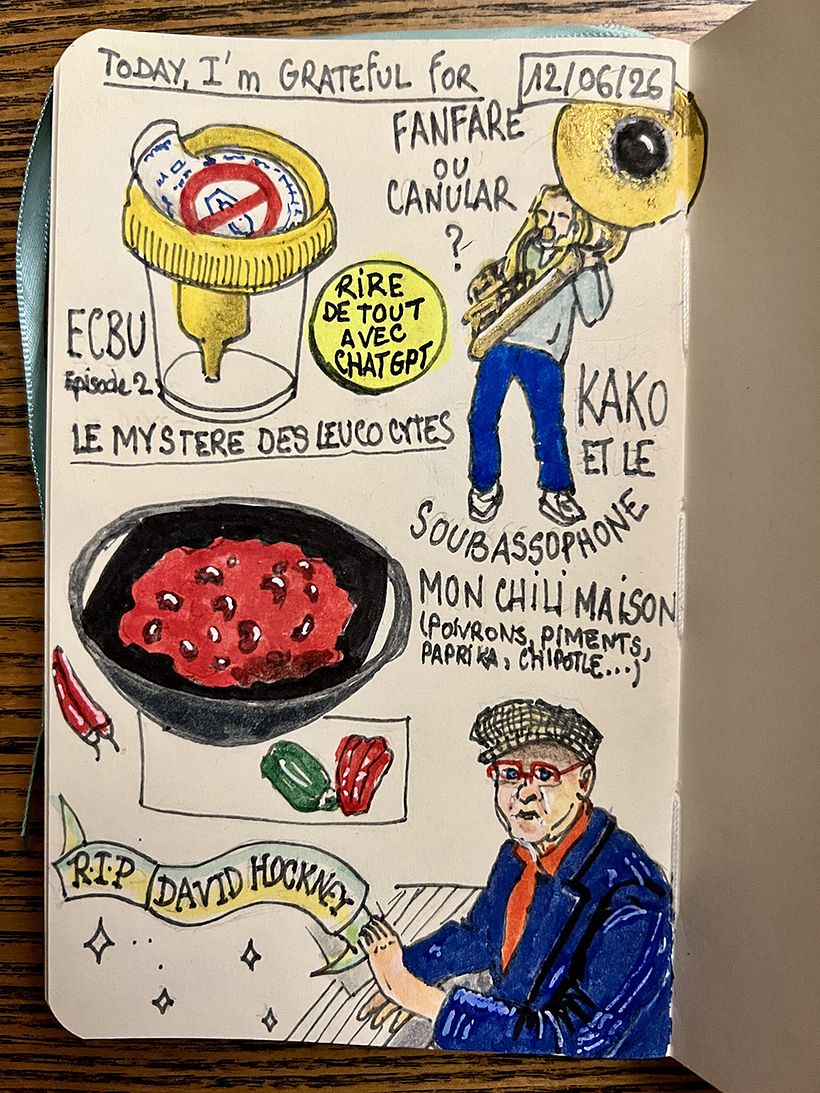 TODAY, I'm GRATEFUL FOR
12/06/26
FANFARE
OU
CANULAR
?
RIRE
DE TOUT
AVEC
CHATGPT
ECBU
Episode 2
LE MYSTERE DES LEUCOCYTES
KAKO
ET LE
SOUBASSOPHONE
MON CHILI MAISON
(POIVRONS, PIMENTS,
PAPRIKA, CHIPOTLE...)
R.I.P DAVID HOCKNEY